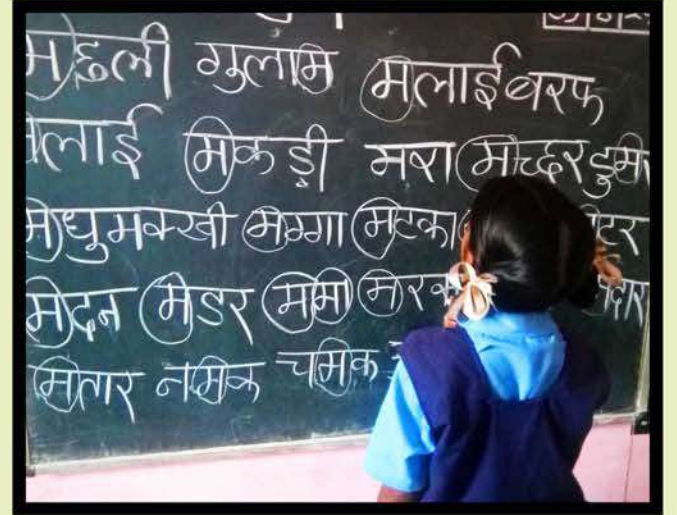 मछली गुलाम मलाईबरफ
मलाई मकड़ी मरा मच्छर डुम
मधुमक्खी मग्गा मटका टर
मदन मडर ममा मरक दार
मतार नमक चमक